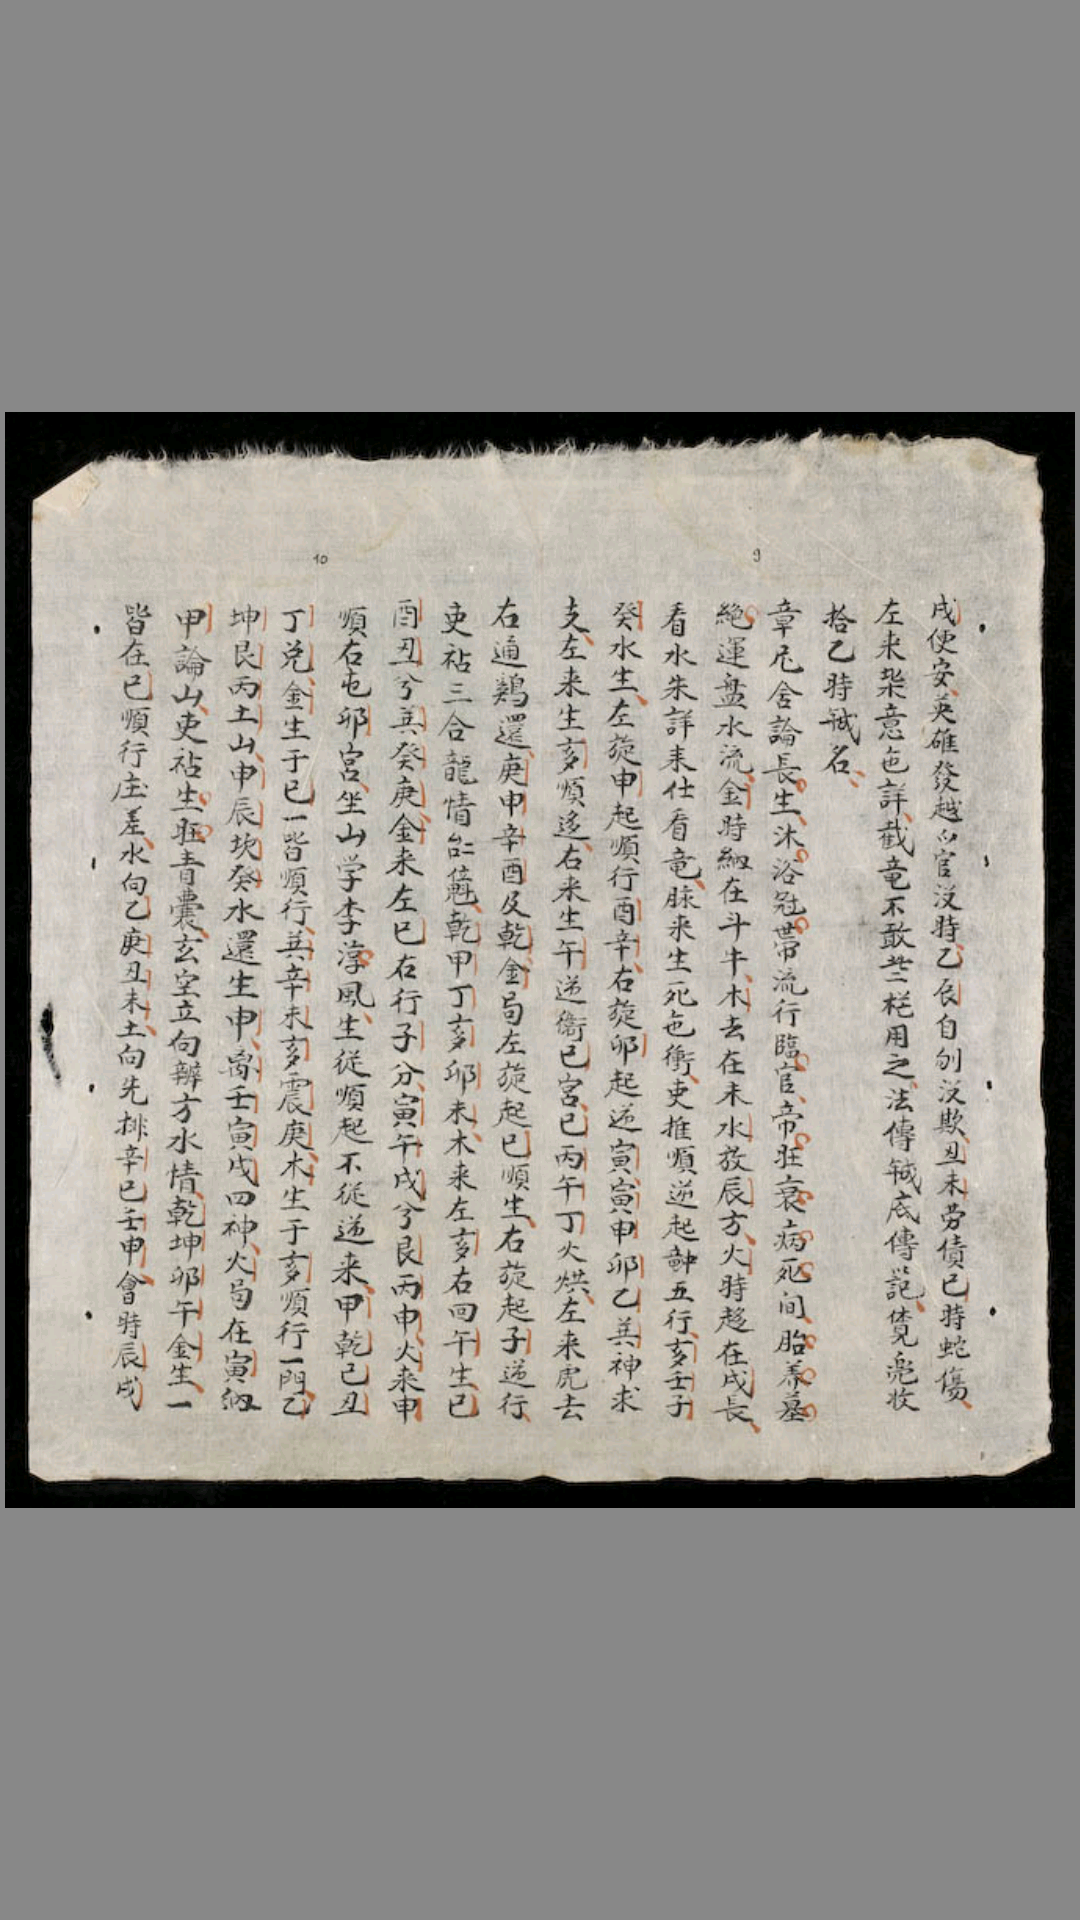 9
戌使安英雄發越以官没時乙辰自刎没欺丑未劳債巳時蛇傷
左来柴意色詳截竜不敢芒栏用之法傳铖底傳記
拾乙時铖名
章尼舍論長生沐浴冠帯流行臨官帝旺衰病死间胎养墓
絶運盤水流金時納在斗牛木去在未水放辰方火時趍在戌長
看水朱詳耒仕看竜脉来生死色衝吏推順逆起五行亥壬子
癸水生左旋申起順行酉辛右旋卯起逆寅寅申卯乙其神求
支左来生亥順迻右来生午逆衞巳宮巳丙午丁火烘左来虎去
10
右通鷄還庚申辛酉及乾金局左旋起巳順生右旋起子逆行
吏祜三合龍情乾甲丁亥卯未木来左亥右囬午生巳
酉丑兮其癸庚金来左巳右行子分寅午戌兮艮丙申火来申
順右屯卯宫坐山学李淳風生從順起不從逆来甲乾己丑
丁兑金生于巳一皆順行其辛未亥震庚木生于亥順行一門乙
坤艮丙土山申辰坎癸水還生申离壬寅戌四神火局在寅納
甲論山吏祜生旺青囊玄空立向辨方水情乾坤卯午金生一
皆在巳順行庄差水向乙庚丑未土向先排辛巳壬申會時辰戌